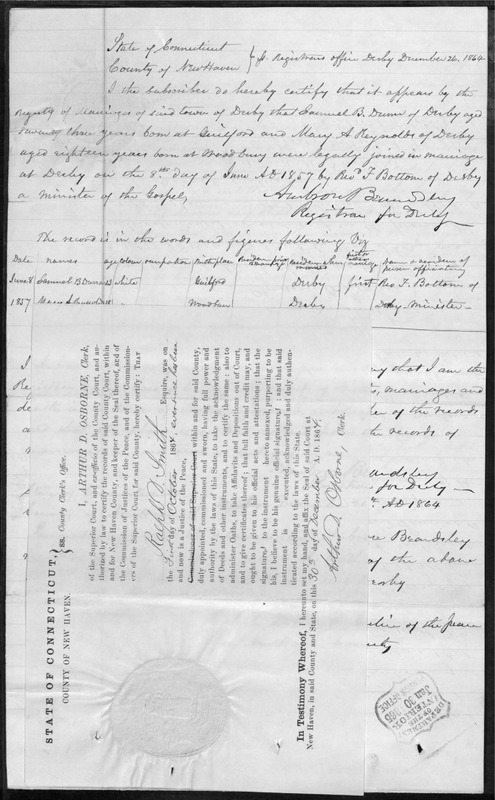 State of Connecticut
County of New Haven } ss. Registrars office Derby December 26, 1864
I the subscriber do hereby certify that it appears by the
Registry of Marriages of said town of Derby that Samuel B. Dunn of Derby aged
twenty three years born at Guilford and Mary A Reynolds of Derby
aged eighteen years born at Woodbury were legally joined in marriage
at Derby on the 8th day of June AD 1857 by Revd F Bottom of Derby
a minister of the Gospel,
Beardsley
Registrar for Derby
The record is in the words and figures following Viz
Date names age colour occupation birthplace residence
name & residence of person officiating
June 8 Samuel B Dunn 23 white Guilford Derby first Rev F. Bottom of
1857 18 " Woodbury Derby Derby Minister
STATE OF CONNECTICUT,
COUNTY OF NEW HAVEN.
ss. County Clerk's Office.
I, ARTHUR D. OSBORNE, Clerk
of the Superior Court, and ex-officio of the County Court, and au-
thorized by law to certify the records of said County Court, within
and for New Haven County, and keeper of the Seal thereof, and of
the Commission of Justices of the Peace, and of the Commission-
ers of the Superior Court for said County, hereby certify: THAT
Ralph A. Smith Esquire, was on
the first day of October 1864, ever since has been
and now is a Justice of the Peace,
Commissioner of said Superior Court within and for said County,
duly appointed, commissioned and sworn, having full power and
authority by the laws of this State, to take the acknowledgment
of Deeds and other instruments, and to certify the same: also to
administer Oaths, to take Affidavits and Depositions out of Court,
and to give certificates thereof; that full faith and credit may, and
ought to be given to his official acts and attestations; that the
signature to the instrument hereto annexed, purporting to be
his, I believe to be his genuine official signature; and that said
instrument is executed, acknowledged and duly authen-
ticated according to the laws of this State.
In Testimony Whereof, I hereunto set my hand, and affix the Seal of said Court at
New Haven, in said County and State, on this 30th day of December A. D. 1864.
Arthur D. Osborne, Clerk.
that I am the
marriages and
of the records
records of
for Derby
AD 1864
Beardsley
of the above
Derby
of the peace
DEPARTMENT
OF THE
INTERIOR
JAN 30 1865